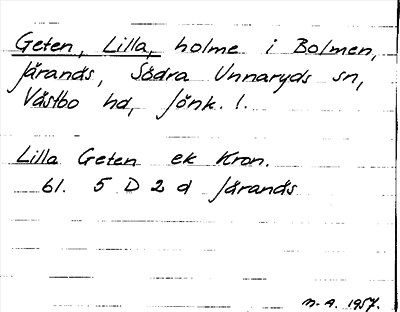 Geten, Lilla, holme i Bolmen,
Järanäs, Södra Unnaryds sn,
Västbo hd, Jönk. l.
Lilla Geten ek Kron.
bl. 5 D 2 d Järanäs
N. A. 1957.